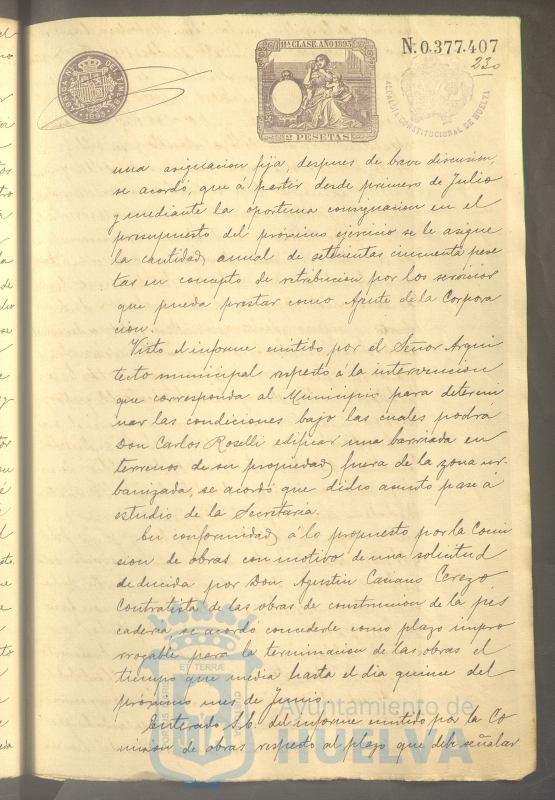 11ª CLASE. AÑO 1895
2 PESETAS
N. 0.377.407
230
ALCALDIA CONSTITUCIONAL DE HUELVA
1895
una asignacion fija, despues de breve discusion,
se acordó, que á partir desde primero de Julio
y mediante la oportuna consignacion en el
presupuesto del próximo ejercicio se le asigne
la cantidad anual de setecientas cincuenta pese
tas en concepto de retribucion por los servicios
que pueda prestar como Agente de la Corpora
cion.
Visto el informe emitido por el Señor Arqui
tecto municipal respecto á la intervencion
que corresponda al Municipio para determi
nar las condiciones bajo las cuales podrá
Don Carlos Roselli edificar una barriada en
terrenos de su propiedad, fuera de la zona ur-
banizada, se acordó que dicho asunto pase á
estudio de la Secretaría.
En conformidad á lo propuesto por la Comi
sion de obras con motivo de una solicitud
deducida por Don Agustin Casiano Cerezo
Contratista de las obras de construccion de la pes
caderia, se acordó concederle como plazo impro
rrogable para la terminacion de las obras el
tiempo que media hasta el dia quince del
próximo mes de Junio.
Enterado S.E. del informe emitido por la Co
mision de obras respecto al plazo que debe señalar
ET TERRÆ
Ayuntamiento de
HUELVA